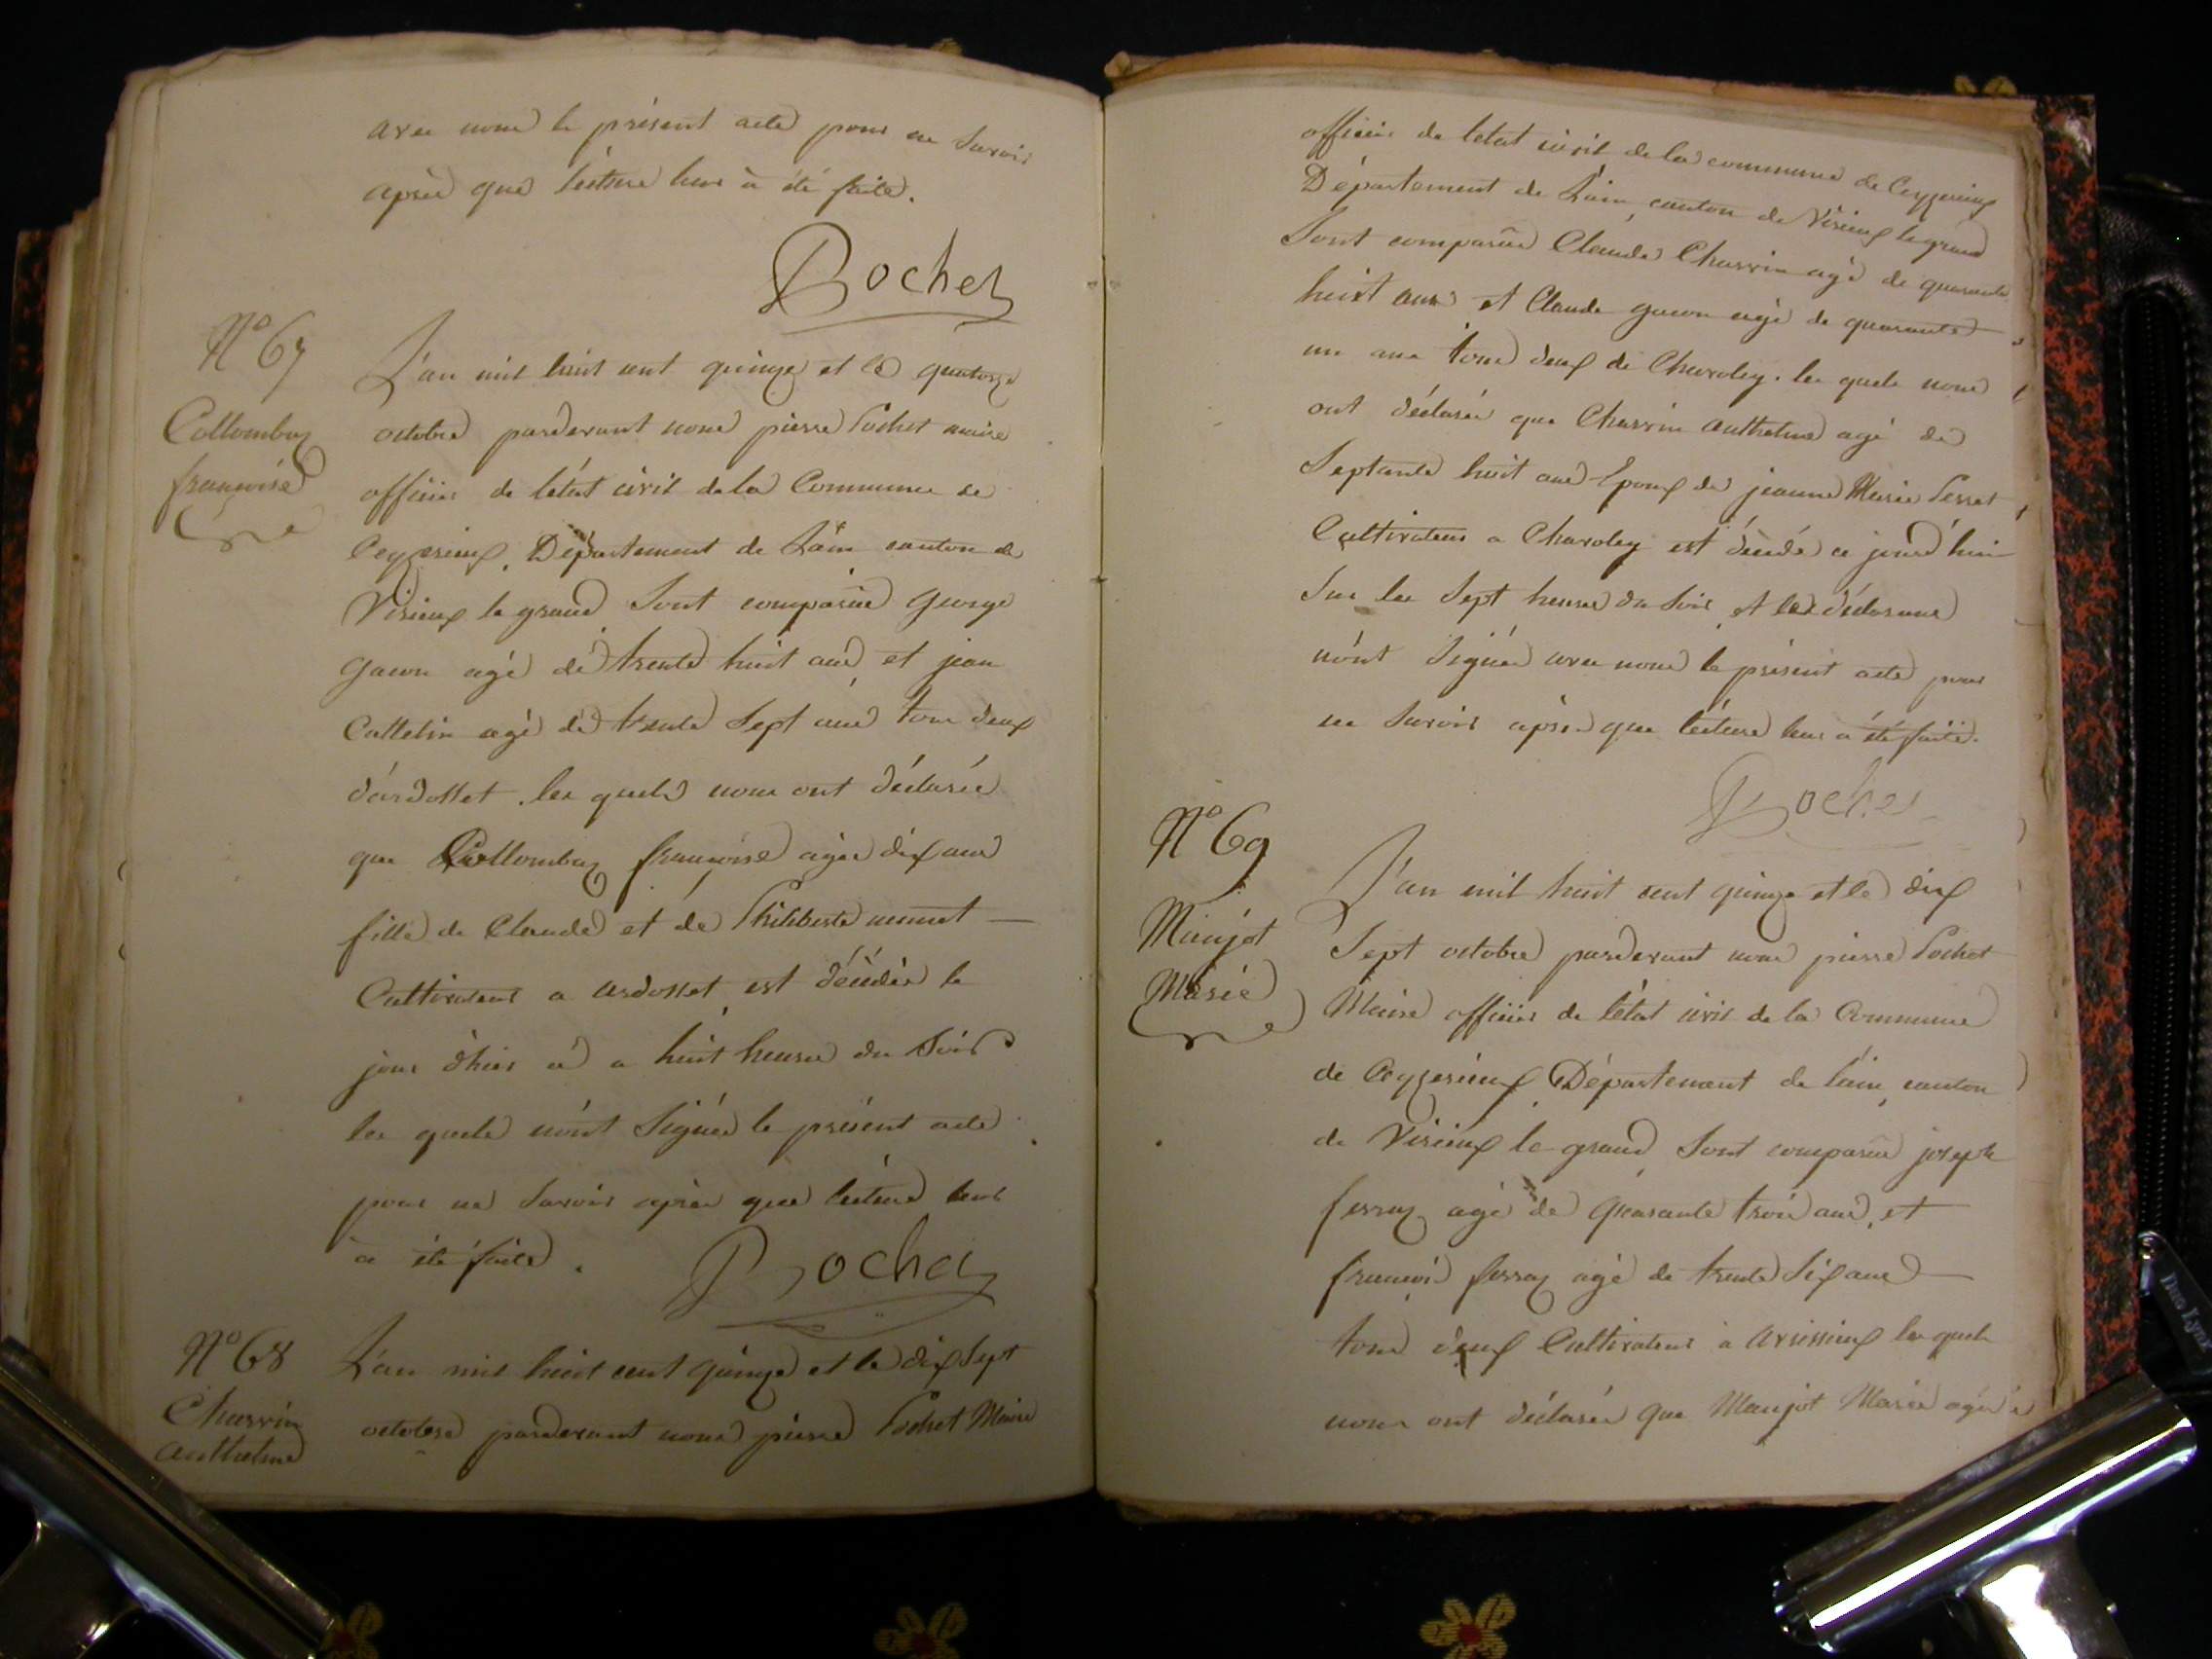 avec nous le présent acte pour ne savoir
après que lécture leur à été faite.
Pochet
N° 67
Collombaz
françoise
L'an mil huit cent quinze et le quatorze
octobre pardevant nous pierre Pochet maire
officier de létat civil de la Commune de
Ceyzerieux, Département de Lain canton de
Virieux le grand Sont comparûe George
gacon agé de trente huit ans, et jean
Cattelin agé de trente Sept ans tous deux
d'ardosset. les quels nous ont déclarée
que Collombaz françoise agée dix ans
fille de Claude et de Philiberte
Cultivateurs a ardosset, est décédée le
jour d'hier a huit heures du Soir
les quels n'ont Signée le présent acte
pour ne Savoir après que lécture leur
a été faite.
Pochet
N° 68
Charvin
anthelme
L'an mil huit cent quinze et le dix Sept
octobre pardevant nous pierre Pochet Maire
officier de létat civil de la commune de Ceyzerieux
Département de Lain, canton de Virieux le grand
Sont comparûe Claude Charvin agé de quarante
huit ans et Claude gacon agé de quarante
un ans tous deux de Charoley. les quels nous
ont déclarée que Charvin anthelme agé de
Septante huit ans Epoux de jeanne Marie Perret
Cultivateur a Charoley est décédé ce jourd'hui
Sur les Sept heures du Soir, et les déclarans
n'ont Signée avec nous le présent acte pour
ne Savoir après que lécture leur a été faite.
Pochet
N° 69
Maujot
Marie
L'an mil huit cent quinze et le dix
Sept octobre pardevant nous pierre Pochet
Maire officier de létat civil de la Commune
de Ceyzerieux, Département de lain, canton
de Virieux le grand, Sont comparûe joseph
ferraz agé de quarante trois ans, et
françois ferraz agé de trente Six ans
tous deux Cultivateurs à avrissieux les quels
nous ont déclarée que Maujot Marie agée